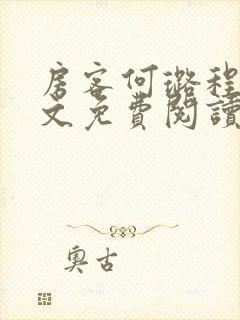 房客何璐程
文免費閱讀
奧古